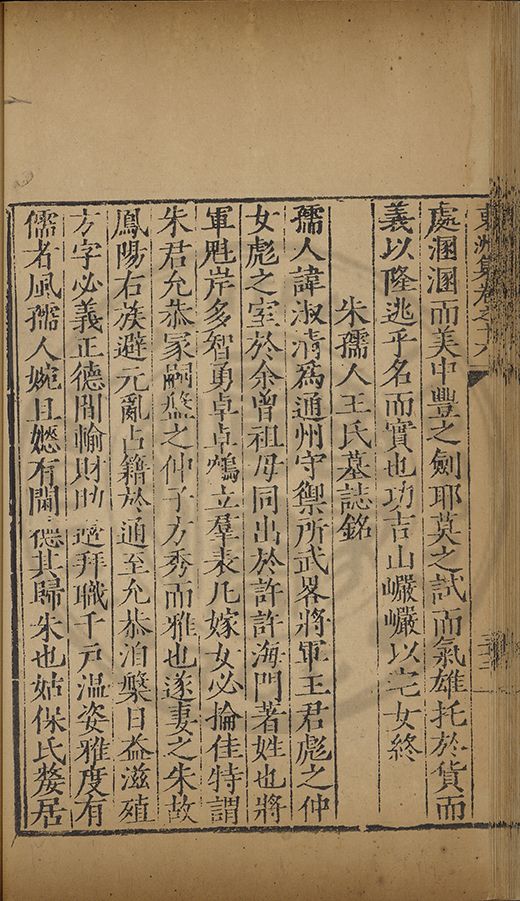 東洲集卷之十六
處涵涵而美中豐之劍耶莫之試而氣雄托於貨而
義以隆逃乎名而實也功吉山巖巖以宅女終
朱孺人王氏墓誌銘
孺人諱淑清爲通州守禦所武畧將軍王君彪之仲
女彪之室於余曾祖母同出於許許海門著姓也將
軍魁岸多智勇卓卓鵷立羣表凡嫁女必掄佳特謂
朱君允恭冢嗣槃之仲子方秀而雅也遂妻之朱故
鳳陽右族避元亂占籍於通至允恭洎槃日益滋殖
方字必義正德間輸財助邊拜職千戶溫姿雅度有
儒者風孺人婉且嫕有閫德其歸朱也姑保氏嫠居